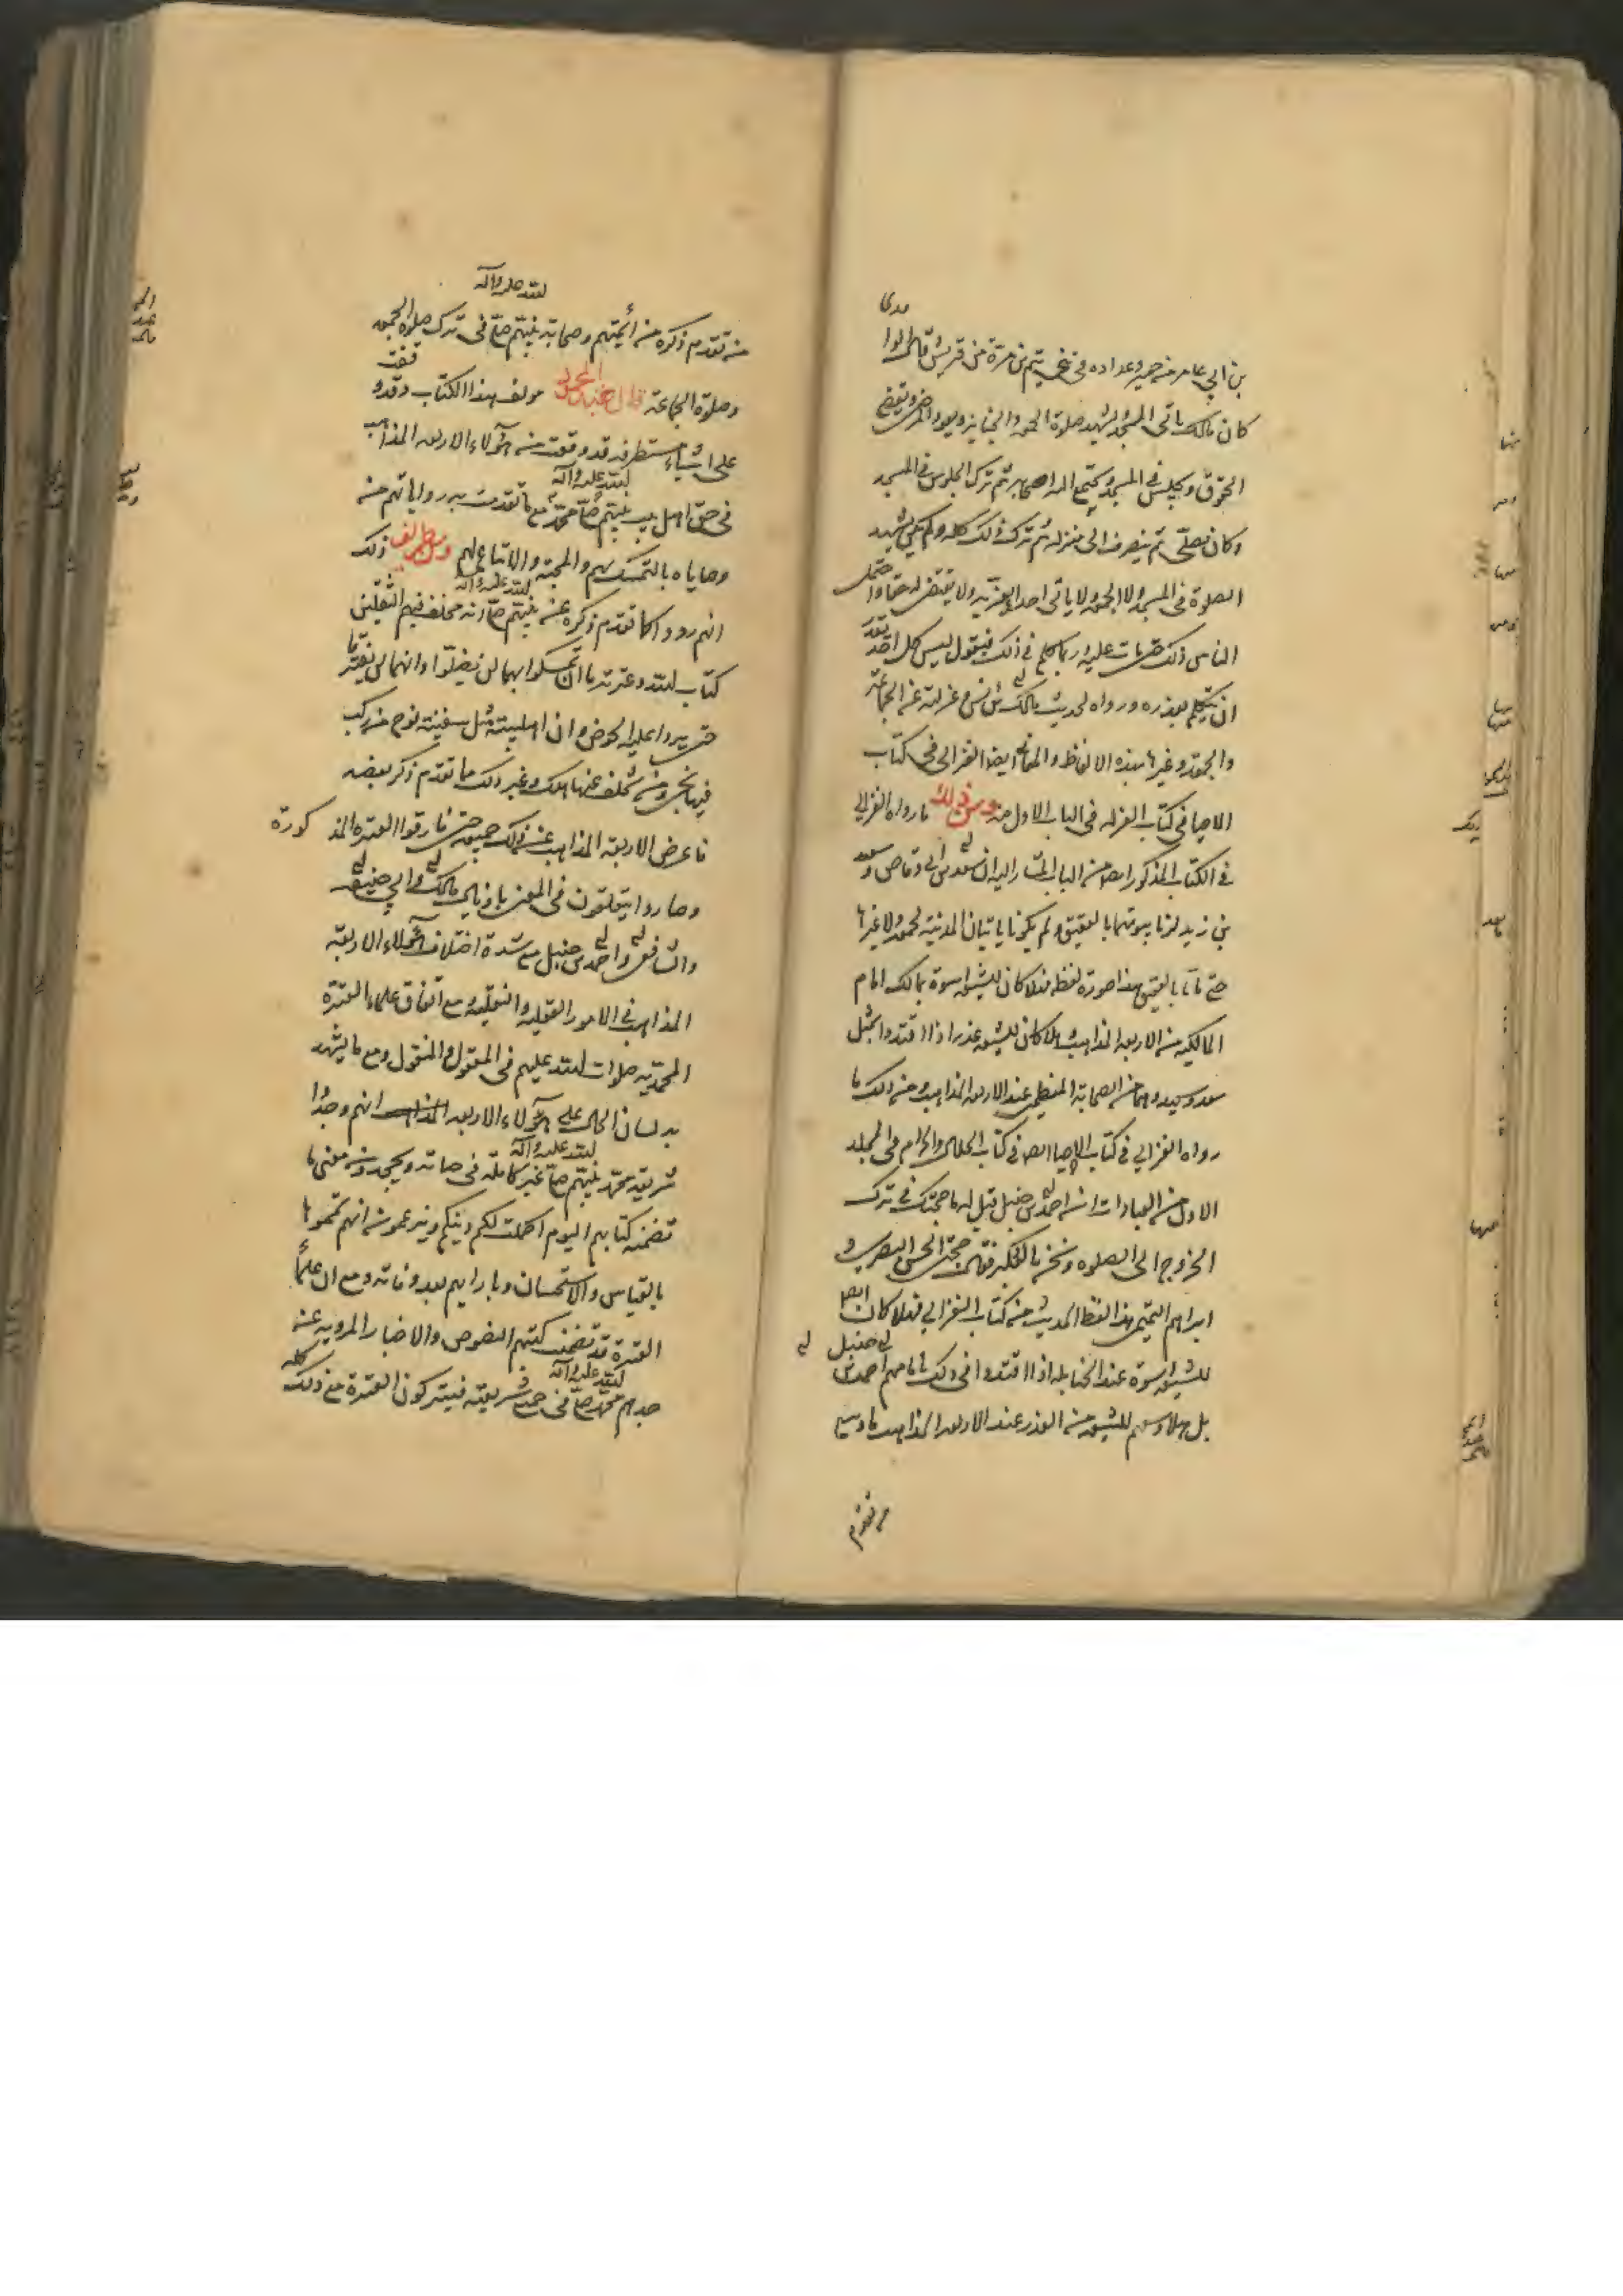 بن ابي عامر من حمير وعداده في بني تيم بن مرة من قريش قال الواقدى
كان مالك ياتى المسجد يشهد صلوة الجمعه والجنايز ويعود المرضى ويقضى
الحقوق ويجلس في المسجد ويجتمع اليه اصحابه ثم ترك الجلوس في المسجد
وكان يصلى ثم ينصرف الى منزله ثم ترك ذلك كله ولم يكن يشهد
الصلوة فى المسجد ولا الجمعه ولا ياتى احدا يعزيه ولا يقضى له حقا واحتمل
الناس ذلك حتى مات عليه وربما كلم في ذلك فيقول ليس كل احد يقدر
ان يتكلم بعذره وروا لحديث مالك بن انس وعزلته عن الجماعة
والجمعة وغيرها بهذه الالفاظ والمعانى ايضا الغزالى فى كتاب
الاحيا فى كتاب العزله فى الباب الاول منه ومن ذلك ما رواه الغزالي
في الكتاب المذكور ايضا من الباب المشار اليه ان سعد بن ابي وقاص وسعيد
بن زيد لزما بيوتهما بالعقيق ولم يكونا ياتيان المدينة لجمعة ولا غيرها
حتى ماتا بالعقيق هذا صورة لفظه فهلا كان للشيعه اسوة بمالك امام
المالكيه من الاربعه المذاهب وهلا كان للشيعه عذر اذا اقتدوا بمثل
سعد وسعيد وهما من الصحابة المعظمين عند الاربعه المذاهب ومن ذلك ما
رواه الغزالي في كتاب الاحيا ايضا في كتاب الحلال والحرام في المجلد
الاول من العبادات انه احمد بن حنبل قيل له ما حجتك في ترك
الخروج الى الصلوه ونحن بالعسكر فقال حجتى الحسن البصرى و
ابراهيم التيمى هذا لفظ الحديث من كتاب الغزالي فهلا كان ايضا
للشيعه اسوة عند الحنابله اذا اقتدوا فى ذلك بامامهم احمد بن حنبل
بل هلا وسعهم للشيعه من العذر عند الاربعه المذاهب ما وسع
من تقدم
من تقدم ذكره من أئمتهم وصحابة نبيهم صلى الله عليه وآله فى ترك صلوة الجمعه
وصلوة الجماعة قال عبد المحمود مولف هذا الكتاب وقد وقفت
على اشياء مستطرفه قد وقعت من هؤلاء الاربعه المذاهب
فى حق اهل بيت نبيهم محمد صلى الله عليه وآله مع ما تقدمت به رواياتهم من
وصاياه بالتمسك بهم والمحبة والاتباع لهم ومن طرائف ذلك
انهم رووا كما تقدم ذكره عن نبيهم صلى الله عليه وآله انه مخلف فيهم الثقلين
كتاب الله وعترته ما ان تمسكوا بهما لن يضلوا وانهما لن يفترقا
حتى يردا عليه الحوض وان اهل بيته مثل سفينة نوح من ركب
فيها نجى ومن تخلف عنها هلك وغير ذلك مما تقدم ذكر بعضه
فاعرض الاربعه المذاهب عن ذلك جميعه حتى فارقوا العترة المذكورة
وصاروا يتعلقون فى المعنى باذيال مالك وابي حنيفه
والشافعى واحمد بن حنبل مع شدة اختلاف هؤلاء الاربعة
المذاهب في الامور العقليه والنقليه مع اتفاق علماء العترة
المحمدية صلوات الله عليهم فى المعقول والمنقول ومع ما يشهد
به لسان الحال على هؤلاء الاربعه المذاهب انهم وجدوا
شريعة محمد نبيهم صلى الله عليه وآله غير كاملة فى حياته ويجحدون معنى ما
تضمنه كتابهم اليوم اكملت لكم دينكم ويزعمون انهم تمموها
بالقياس والاستحسان وبارايهم بعد وفاته ومع ان علماء
العترة قد تضمنت كتبهم النصوص والاخبار المرويه عن
جدهم محمد صلى الله عليه وآله فى جميع شريعته فيتركون العترة مع ذلك كله